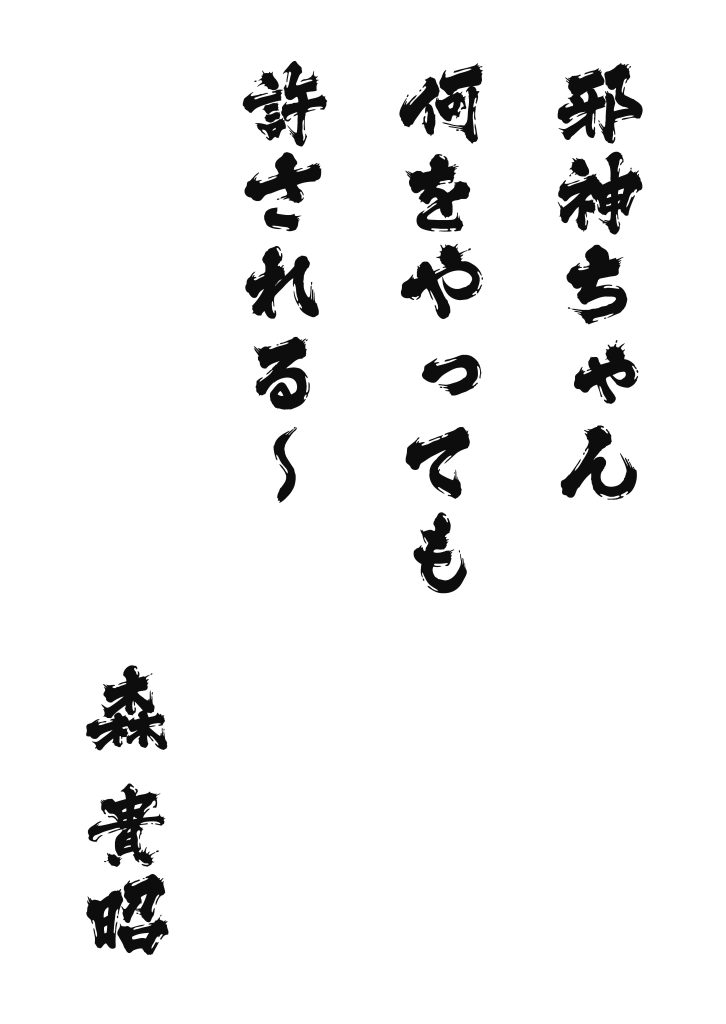 邪神ちゃん
何をやっても
許される〜
森 貴昭